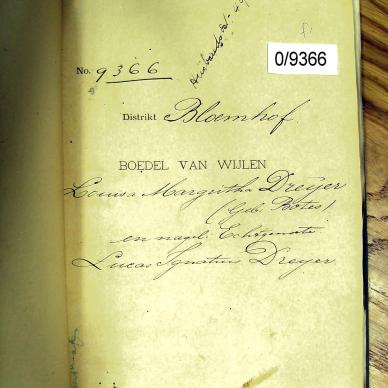 0/9366
No. 9366
Distrikt Bloemhof
BOEDEL VAN WIJLEN
Louisa Margritha Dreyer
(Geb: Botes)
en nagel: Echtgenoote
Lucas Ignatius Dreyer